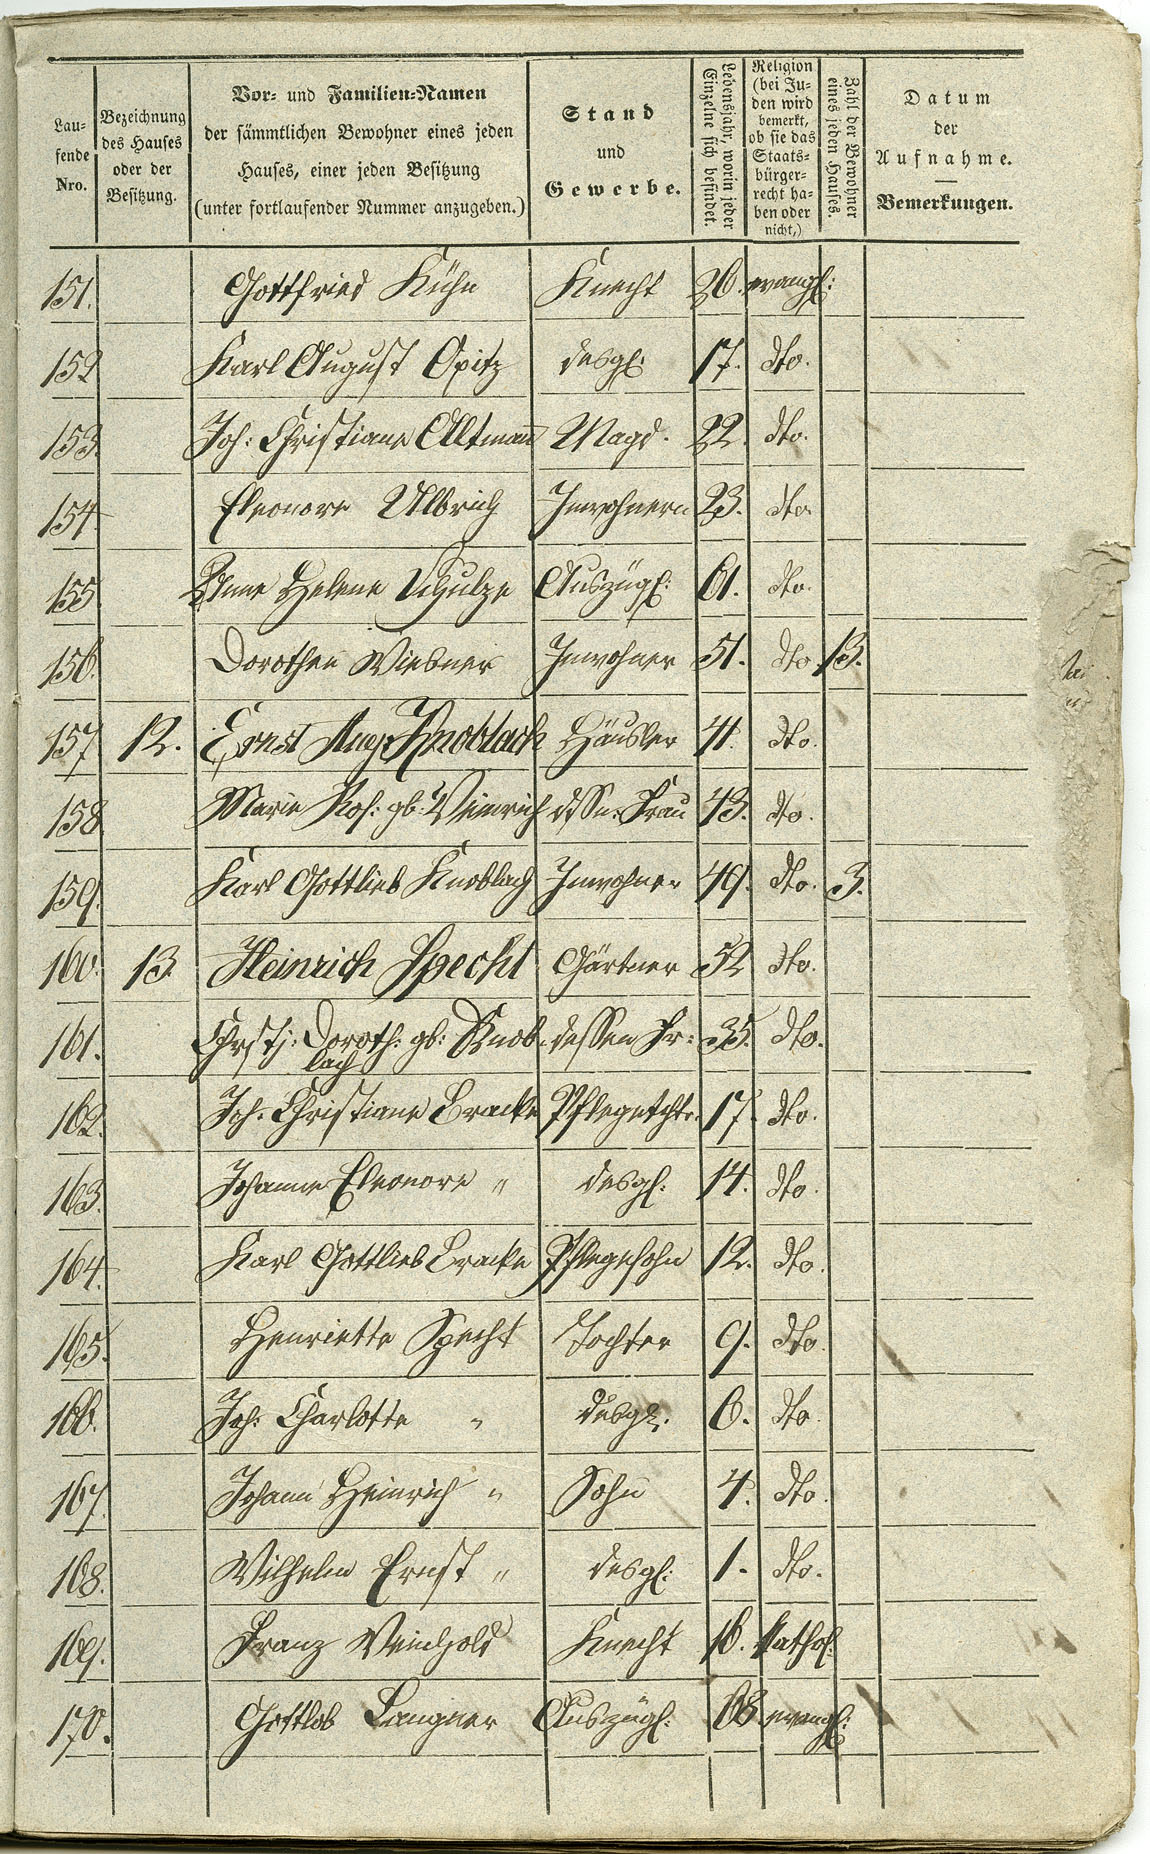 Lau-
fende
Nro.
Bezeichnung
des Hauses
oder der
Besitzung.
Vor- und Familien-Namen
der sämmtlichen Bewohner eines jeden
Hauses, einer jeden Besitzung
(unter fortlaufender Nummer anzugeben.)
Stand
und
Gewerbe.
Lebensjahr, worin jeder
Einzelne sich befindet.
Religion
(bei Ju-
den wird
bemerkt,
ob sie das
Staats-
bürger-
recht ha-
ben oder
nicht,)
Zahl der Bewohner
eines jeden Hauses.
Datum
der
Aufnahme.
Bemerkungen.
151. Gottfried Kühn Knecht 26. evangl:
152 Karl August Opitz desgl: 17. dto.
153. Joh: Christiane Altmann Magd. 22. dto.
154 Eleonore Ulbrich Inwohnern 23. dto.
155. Anne Helene Schulze Auszügl: 61. dto.
156. Dorothea Wiesner Inwohner 51. dto. 13.
157 12. Ernst Aug. Knoblach Häusler 41. dto.
158 Marie Ros: gb: Weinrich dssn. Frau 43. dto.
159. Karl Gottlieb Knoblach Inwohner 49. dto. 3.
160. 13. Heinrich Specht Gärtner 52 dto.
161. Chrsti: Doroth: gb: Knob- dessen Fr: 35. dto.
lach
162. Joh. Christiane Bracke Pflegetchtr. 17. dto.
163. Johanne Eleonore " desgl: 14. dto.
164. Karl Gottlieb Bracke Pflegesohn 12. dto.
165. Henriette Specht Tochter 9. dto.
166. Joh: Charlotte " desgl. 6. dto.
167. Johann Heinrich " Sohn 4. dto.
168. Wilhelm Ernst " desgl: 1. dto.
169. Franz Weinhold Knecht 16. kathol:
170. Gottlob Langner Auszügl: 68. evangl: